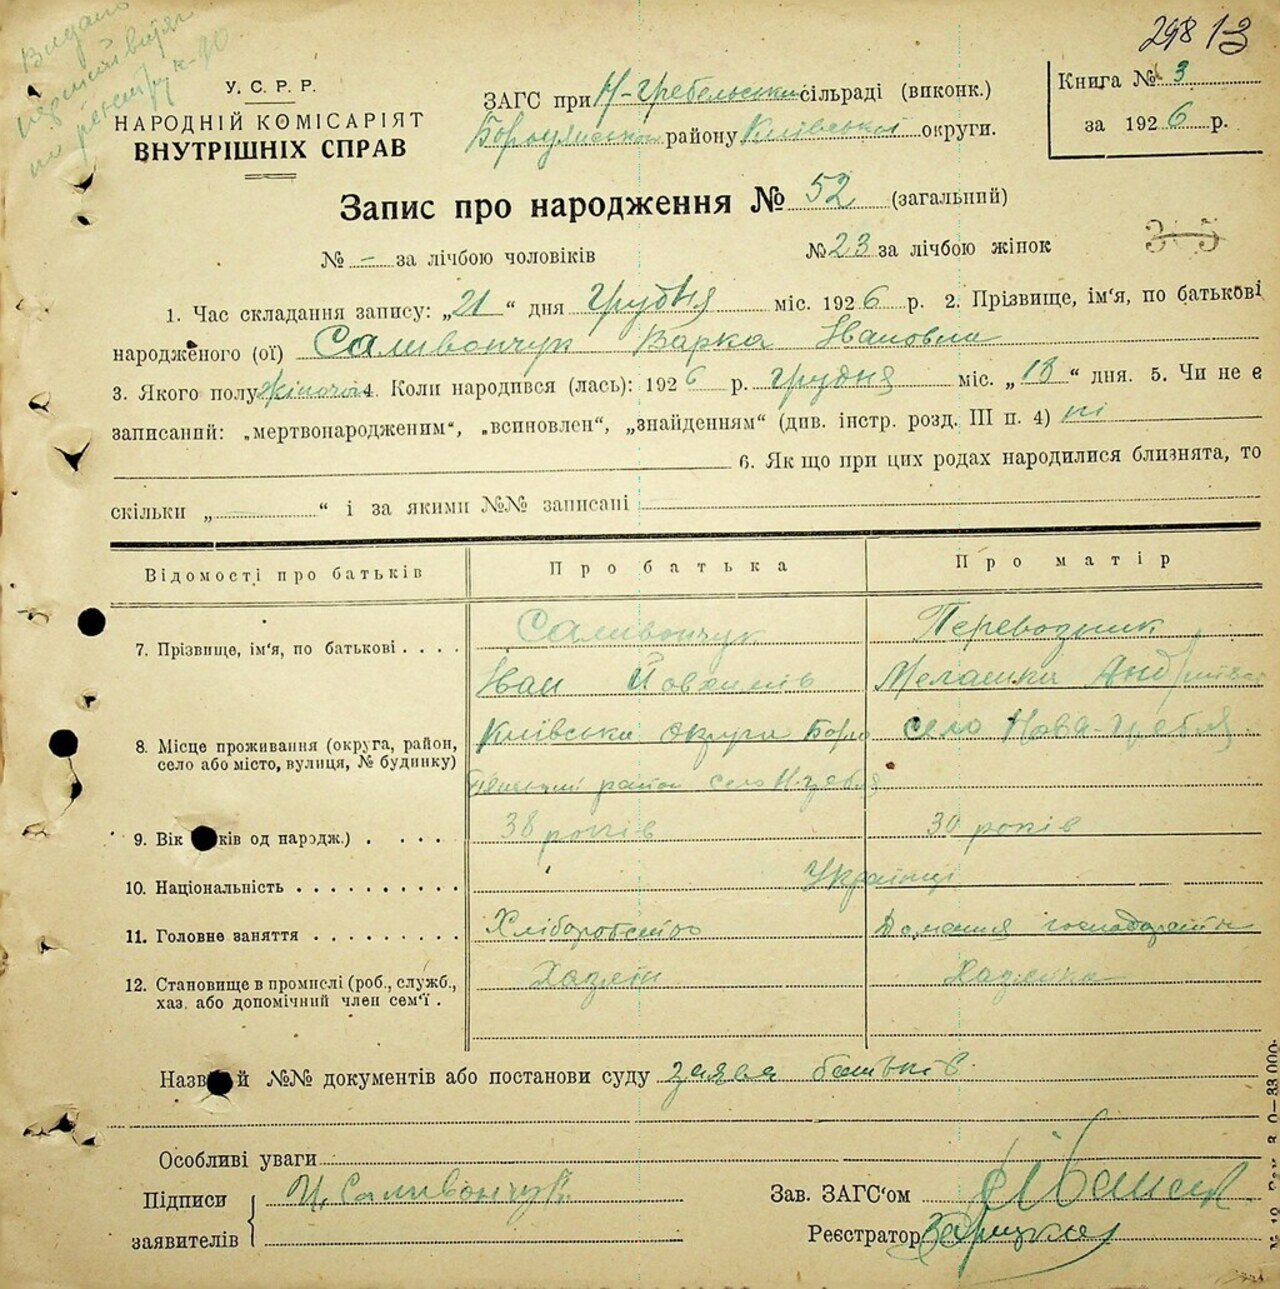 298 13
Видано
У. С. Р. Р.
НАРОДНІЙ КОМІСАРІЯТ
ВНУТРІШНІХ СПРАВ
ЗАГС при Н-Гребельськ сільраді (виконк.)
району Київської округи.
Книга № 3
за 1926 р.
Запис про народження № 52 (загальний)
№ - за лічбою чоловіків № 23 за лічбою жінок
35
1. Час складання запису: „21“ дня Грудня міс. 1926 р. 2. Прізвище, ім‘я, по батькові
народженого (ої) Саливончук Варка Івановна
3. Якого полу жіночої 4. Коли народився (лась): 1926 р. грудня міс. „13“ дня. 5. Чи не є
записаний: „мертвонародженим“, „всиновлен“, „знайденням“ (див. інстр. розд. III п. 4) ні
6. Якщо при цих родах народилися близнята, то
скільки „ “ і за якими №№ записані
Відомості про батьків Про батька Про матір
7. Прізвище, ім‘я, по батькові . . . . Саливончук Переводник
Іван Мелашка
8. Місце проживання (округа, район, Київська округа Бори село Нова-Гребля
село або місто, вулиця, № будинку) район село Н-Гребля
9. Вік ків од народж.) . . . . 38 років 30 років
10. Національність . . . . . . . . . . Українці
11. Головне заняття . . . . . . . . . Хліборобство Домашня господарство
12. Становище в промислі (роб., служб., Хазяїн Хазяйка
хаз. або допомічний член сем‘ї .
Назв й №№ документів або постанови суду заява батьків
Особливі уваги
Підписи И. Саливончук Зав. ЗАГС‘ом
заявителів Реєстратор Зарицка